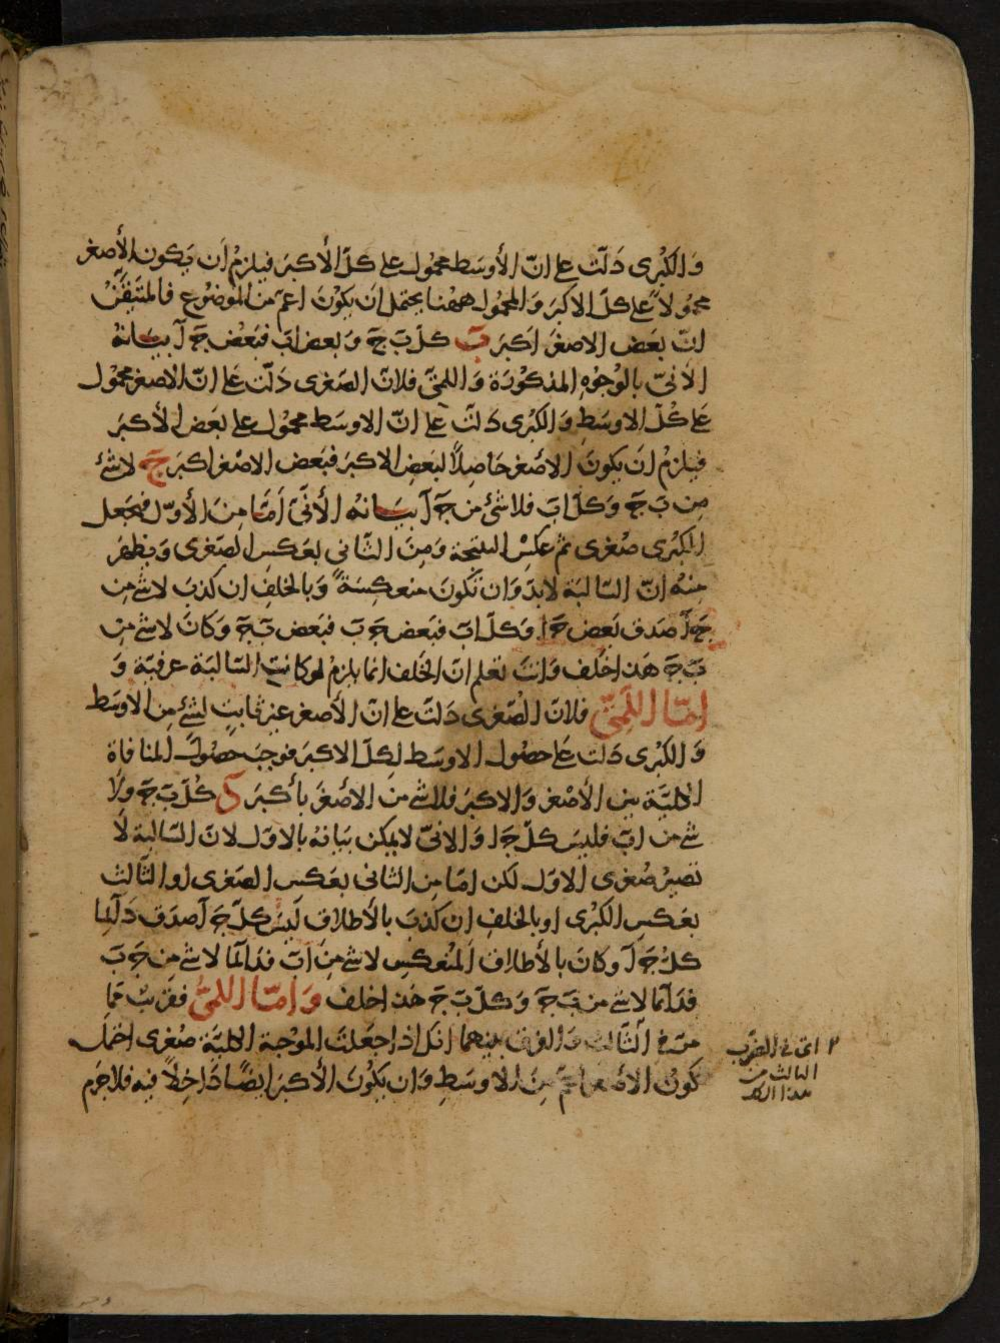 وَالكُبْرى دَلّت على انّ الأوسَط محمُول على كلّ الأكبَر فيلزمُ اَن يَكون الأصغر
محمُولاً على كلّ الاكبَر وَالمحمُول ههُنا يحتمل ان يكُونَ اعمّ من الموضُوع فالمتيقَّنُ
انّ بعَض الاصغَر اَكبَر بَ كلّ بَ جَ وَبعض اَبَ فبَعْض جَ آ بيَــانهُ
الاِنىّ بالوُجُوهِ المذكورَة وَاللمّىّ فلانّ الصّغرى دَلّت عَلى انّ الاصغر محمُول
عَلى كُلّ الاوسَطِ وَالكبُرى دَلّت على انّ الاوسَط محمُول على بعَض الأكبَر
فيلزمُ ان يكونَ الأصغر حَاصِلاً لبعَض الاكبَر فبَعض الاصغر اكبَر جَ لا شئَ
مِن بَ جَ وَكلّ اَبَ فلا شئ من جَ آ بيَــانهُ الأنّىّ اَمّا مِنَ الأوّل فبجَعل
الكُبْرى صُغرى ثم عَكسْ النتيجة وَمِنَ الثَّانى بعَكس الصّغرى وَيظهَر
منهُ انّ السّالبَة لابدّ وَان تكونَ منعكِسَةً وَبالخلفِ ان كذبَ لا شئ مِن
جَ آ صَدق بَعض جَ آ وَكلّ ابَ فبَعض جَ بَ فبَعض بَ جَ وَكانَ لا شئ مِن
بَ جَ هَذا خلف وَانتَ تعلم انّ الخلف انما يلزمُ لو كانت السّالبَة عرفيّة وَ
اِمّا اللّمىّ فلانّ الصّغرى دَلّت على انّ الأصغر غير ثابت لشئ من الاوسَط
وَالكُبرى دَلّت عَلى حصُول الاوسَط لكلّ الاكبَر فوجبَ حصُول المنافاة
الكليّة بين الأصْغر وَالاكبَر فلا شئ من الأصغَر بأكبَر دَ كُلّ بَ جَ ولا
شئ من ابَ فليسَ كلّ جَ ا وَالانىّ لا يمكن بيَانهُ بالاوّل لانّ السّالبَة لا
تصيرُ صُغرى الاوّل لكن امّا مِن الثانى بعَكس الصّغرى او الثّالث
بعَكسِ الكبُرى او بالخلفِ ان كذبَ بالأطلاق ليسَ كلّ جَ آ صدَق دَآئما
كلّ جَ آ وكانَ بالأطلاق المنُعكس لا شئ مِنَ اَبَ فدَآئما لا شئ من جَ بَ
فدَآئما لا شئ من بَ جَ وَكلّ بَ جَ هَذا خلف وَامّا اللمىّ فقريبٌ ممّا
مرّ فى الثّالث وَالفرق بينهما انك اذا جعَلتَ الموُجبة الكليَّة صُغرى احتمل
كون الاصْغر اعمّ مِنَ الاوسَطِ وَان يكُونَ الأكبَر ايضًا دَاخِلاً فيه فلا جَرم
٢ اى فى الضرب
الثالث من
هذا الشكل